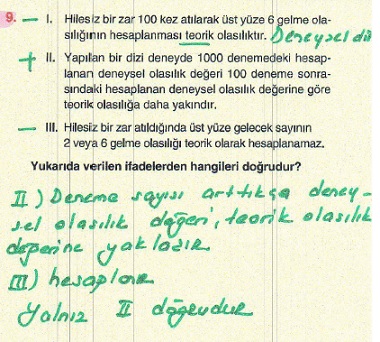 9. — I. Hilesiz bir zar 100 kez atılarak üst yüze 6 gelme ola-
sılığının hesaplanması teorik olasılıktır. Deneysel dir
+ II. Yapılan bir dizi deneyde 1000 denemedeki hesap-
lanan deneysel olasılık değeri 100 deneme sonra-
sındaki hesaplanan deneysel olasılık değerine göre
teorik olasılığa daha yakındır.
— III. Hilesiz bir zar atıldığında üst yüze gelecek sayının
2 veya 6 gelme olasılığı teorik olarak hesaplanamaz.
Yukarıda verilen ifadelerden hangileri doğrudur?
II) Deneme sayısı arttıkça deney-
sel olasılık değeri, teorik olasılık
değerine yaklaşır
III) hesaplanır
Yalnız II doğrudur